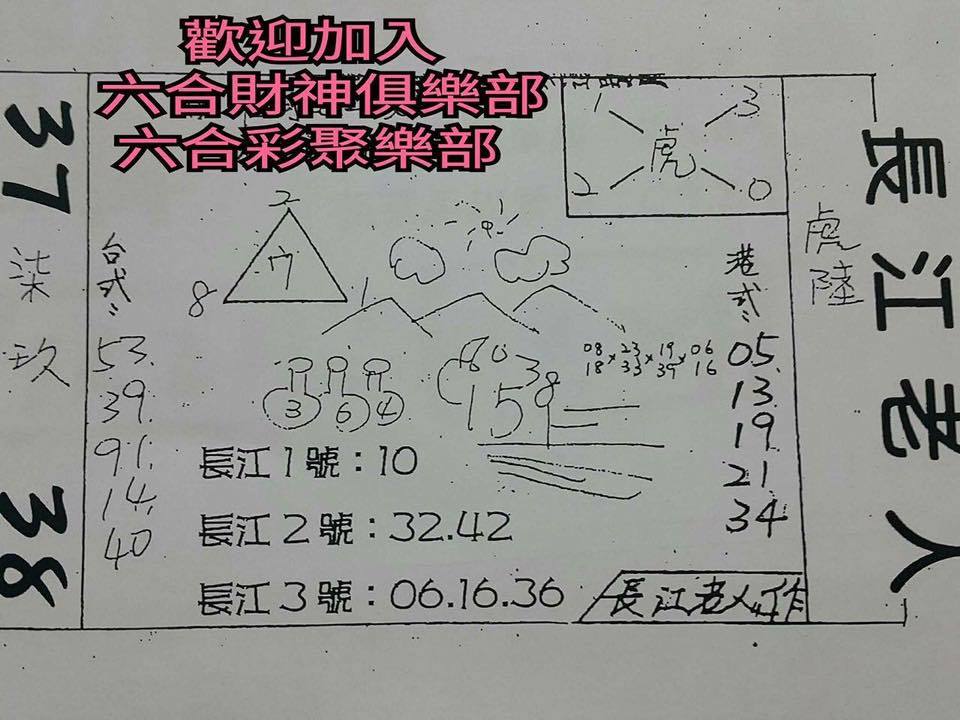 歡迎加入
六合財神俱樂部
六合彩聚樂部
長江老人
虎陸
1 3
虎
2 0
37
柒玖
38
台式:
53.
39.
91.
14.
40
2
8 1
3
3 6 4
15
8
08 23 19 06
18 × 33 × 39 × 16
港式:
05.
13
19
21
34
長江1號:10
長江2號:32.42
長江3號:06.16.36
長江老人作